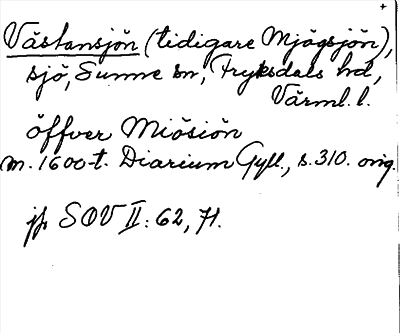 Västansjön (tidigare Mjögsjön),
sjö, Sunne sn, Fryksdals hd,
Värml. l.
öffver Miösiön
m. 1600-t. Diarium Gyll., s. 310. orig.
jfr SOV II: 62, 71.